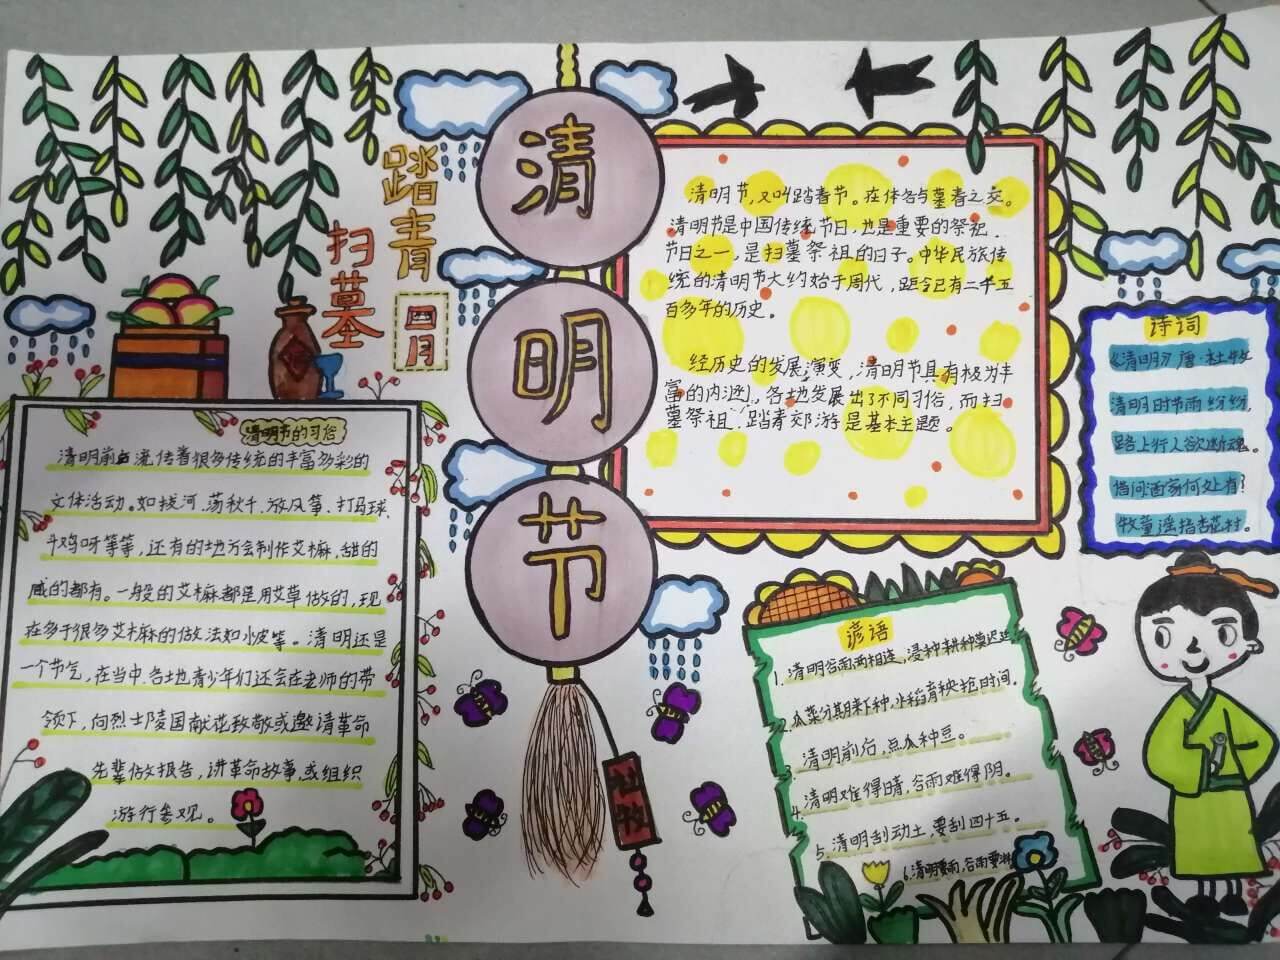 清明节
踏青
扫墓
四月
清明节的习俗
清明前后流传着很多传统的丰富多彩的
文体活动。如拔河、荡秋千、放风筝、打马球、
斗鸡呀等等，还有的地方会制作艾麻，甜的
咸的都有。一般的艾麻都是用艾草做的，现
在多于很多艾麻的做法如小皮等。清明还是
一个节气，在当中，各地青少年们还会在老师的带
领下，向烈士陵园献花致敬或邀请革命
先辈做报告，讲革命故事，或组织
游行参观。
清明节，又叫踏春节。在体各与暮春之交。
清明节是中国传统节日，也是重要的祭祀
节日之一，是扫墓祭祖的日子。中华民族传
统的清明节大约始于周代，距今已有二千五
百多年的历史。
经历史的发展演变，清明节具有极为丰
富的内涵，各地发展出了不同习俗，而扫
墓祭祖、踏青郊游是基本主题。
诗词
《清明》唐·杜牧
清明时节雨纷纷，
路上行人欲断魂。
借问酒家何处有？
牧童遥指杏花村。
谚语
1.清明谷雨两相连，浸种耕种莫迟延。
2.瓜菜分期来下种，水稻育秧抢时间。
3.清明前后，点瓜种豆。
4.清明难得晴，谷雨难得阴。
5.清明刮动土，要刮四十五。
6.清明要雨，谷雨要淋